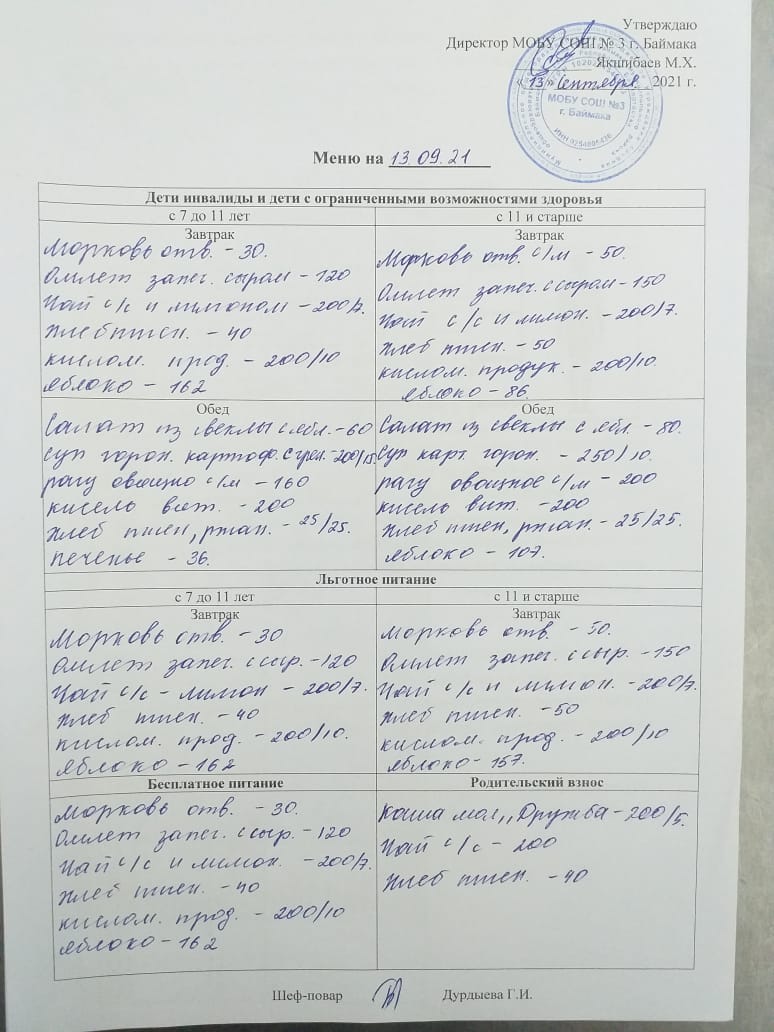 Утверждаю
Директор МОБУ СОШ № 3 г. Баймака
Якшибаев М.Х.
«13» Сентября 2021 г.
МОБУ СОШ №3
г. Баймака
Меню на 13.09.21
Дети инвалиды и дети с ограниченными возможностями здоровья
с 7 до 11 лет
Завтрак
Морковь отв. - 30.
Омлет запеч. сыром - 120
Чай с/с и лимоном - 200/7.
Хлеб пшен. - 40
кислом. прод. - 200/10
яблоко - 162
с 11 и старше
Завтрак
Морковь отв. с/м - 50.
Омлет запеч. с сыром - 150
Чай с/с и лимон. - 200/7.
Хлеб пшен. - 50
кислом. продук. - 200/10.
яблоко - 86.
Обед
Салат из свеклы с ябл. - 60
Суп горох. картоф. с грен. - 200/15
рагу овощно с/м - 160
кисель вит. - 200
Хлеб пшен, ржан. - 25/25.
печенье - 36.
Обед
Салат из свеклы с ябл. - 80.
Суп карт. горох. - 250/10.
рагу овощное с/м - 200
кисель вит. - 200
Хлеб пшен, ржан. - 25/25.
яблоко - 107.
Льготное питание
с 7 до 11 лет
Завтрак
Морковь отв. - 30
Омлет запеч. с сыр. - 120
Чай с/с - лимон - 200/7.
Хлеб пшен. - 40
кислом. прод. - 200/10.
яблоко - 162
с 11 и старше
Завтрак
Морковь отв. - 50.
Омлет запеч. с сыр. - 150
Чай с/с и лимон. - 200/7.
Хлеб пшен. - 50
кислом. прод. - 200/10
яблоко - 157.
Бесплатное питание
Морковь отв. - 30.
Омлет запеч. с сыр. - 120
Чай с/с и лимон. - 200/7.
Хлеб пшен. - 40
кислом. прод. - 200/10
яблоко - 162
Родительский взнос
Каша мол „Дружба - 200/5.
Чай с/с - 200
Хлеб пшен. - 40
Шеф-повар Дурдыева Г.И.